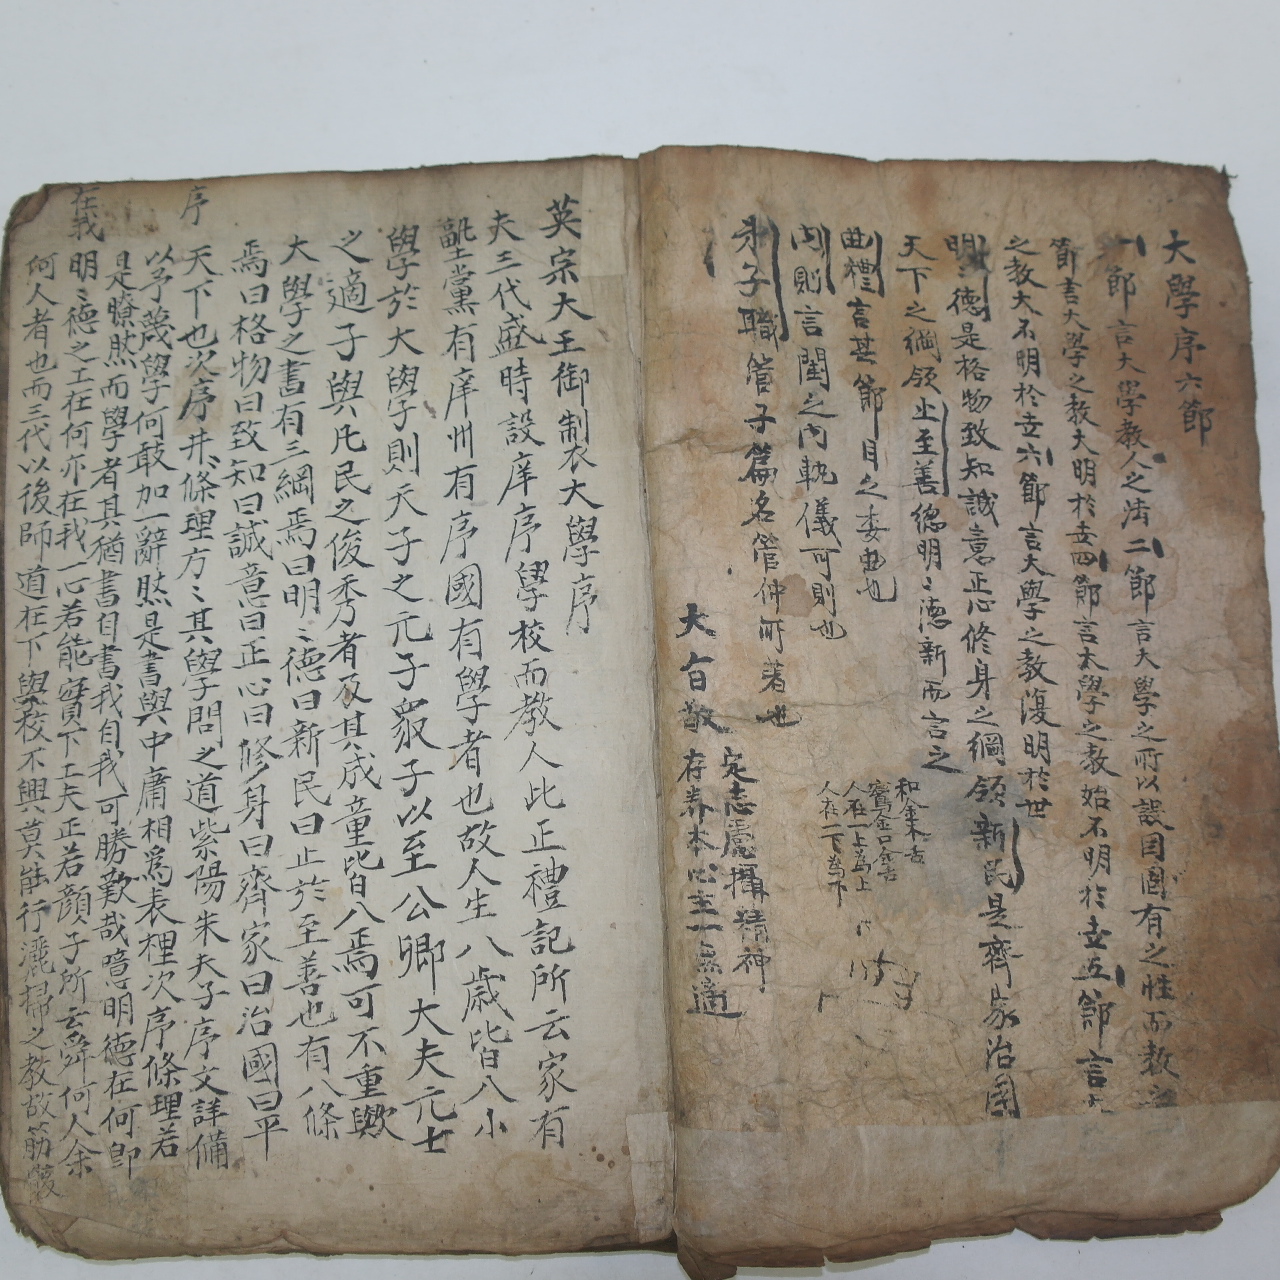 大學序六節
一節言大學教人之法二節言大學之所以設因固有之性而教之
節言大學之教大明於世四節言大學之教始不明於世五節言大
之教大不明於世六節言大學之教復明於世
明〻德是格物致知誠意正心修身之綱領新民是齊家治國
天下之綱領止至善總明〻德新而言之
曲禮言其節目之委曲也
內則言閨之內軌儀可則也
弟子職管子篇名管仲所著也
和金木舌
金口金舌
人在一上為上
人在一下為下
定志慮攝精神
大旨敬存養本心主一無適
英宗大王御制大學序
夫三代盛時設庠序學校而教人此正禮記所云家有
塾黨有庠州有序國有學者也故人生八歲皆入小
學於大學則天子之元子衆子以至公卿大夫元士
之適子與凡民之俊秀者及其成童皆入焉可不重歟
大學之書有三綱焉曰明〻德曰新民曰止於至善也有八條
焉曰格物曰致知曰誠意曰正心曰修身曰齊家曰治國曰平
天下也次序井〻條理方〻其學問之道紫陽朱夫子序文詳備
序
以予蔑學何敢加一辭然是書與中庸相爲表裡次序條理若
是瞭然而學者其猶書自書我自我可勝歎哉噫明德在何卽
在我
明〻德之工在何亦在我一心若能實下工夫正若顏子所云舜何人余
何人者也而三代以後師道在下學校不興莫能行灑掃之教故筋骸